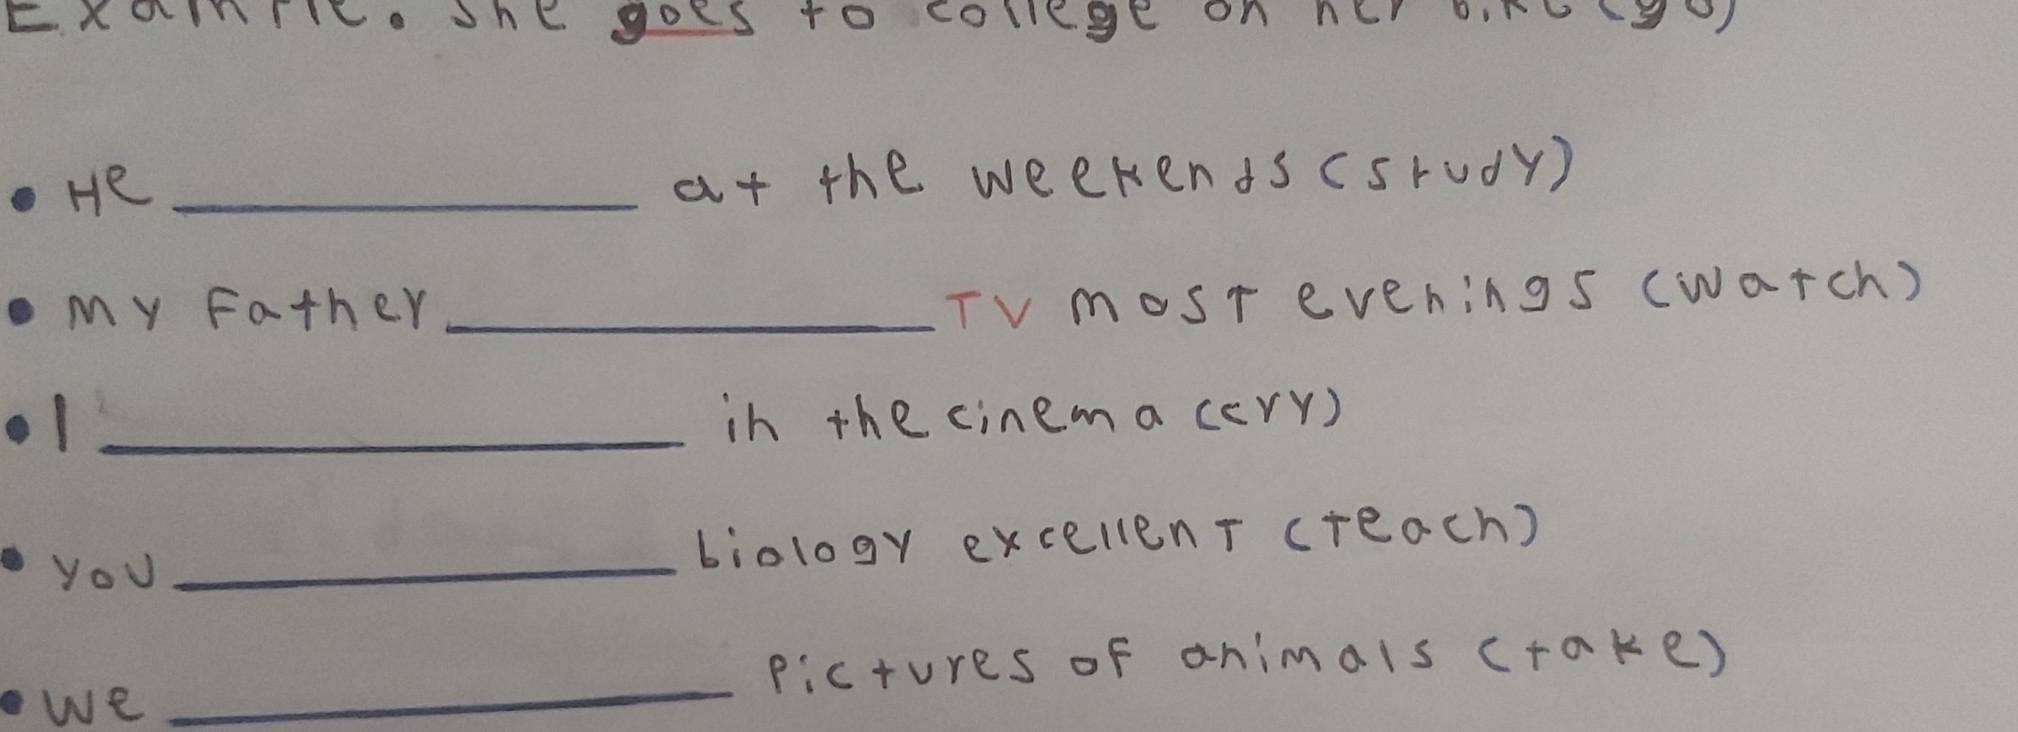 Example. She goes to college on her bike (go)
• He ____________ at the weekends (study)
• My Father ____________ TV most evenings (watch)
• I ____________ in the cinema (cry)
• you ____________ biology excellent (teach)
• we ____________ pictures of animals (take)